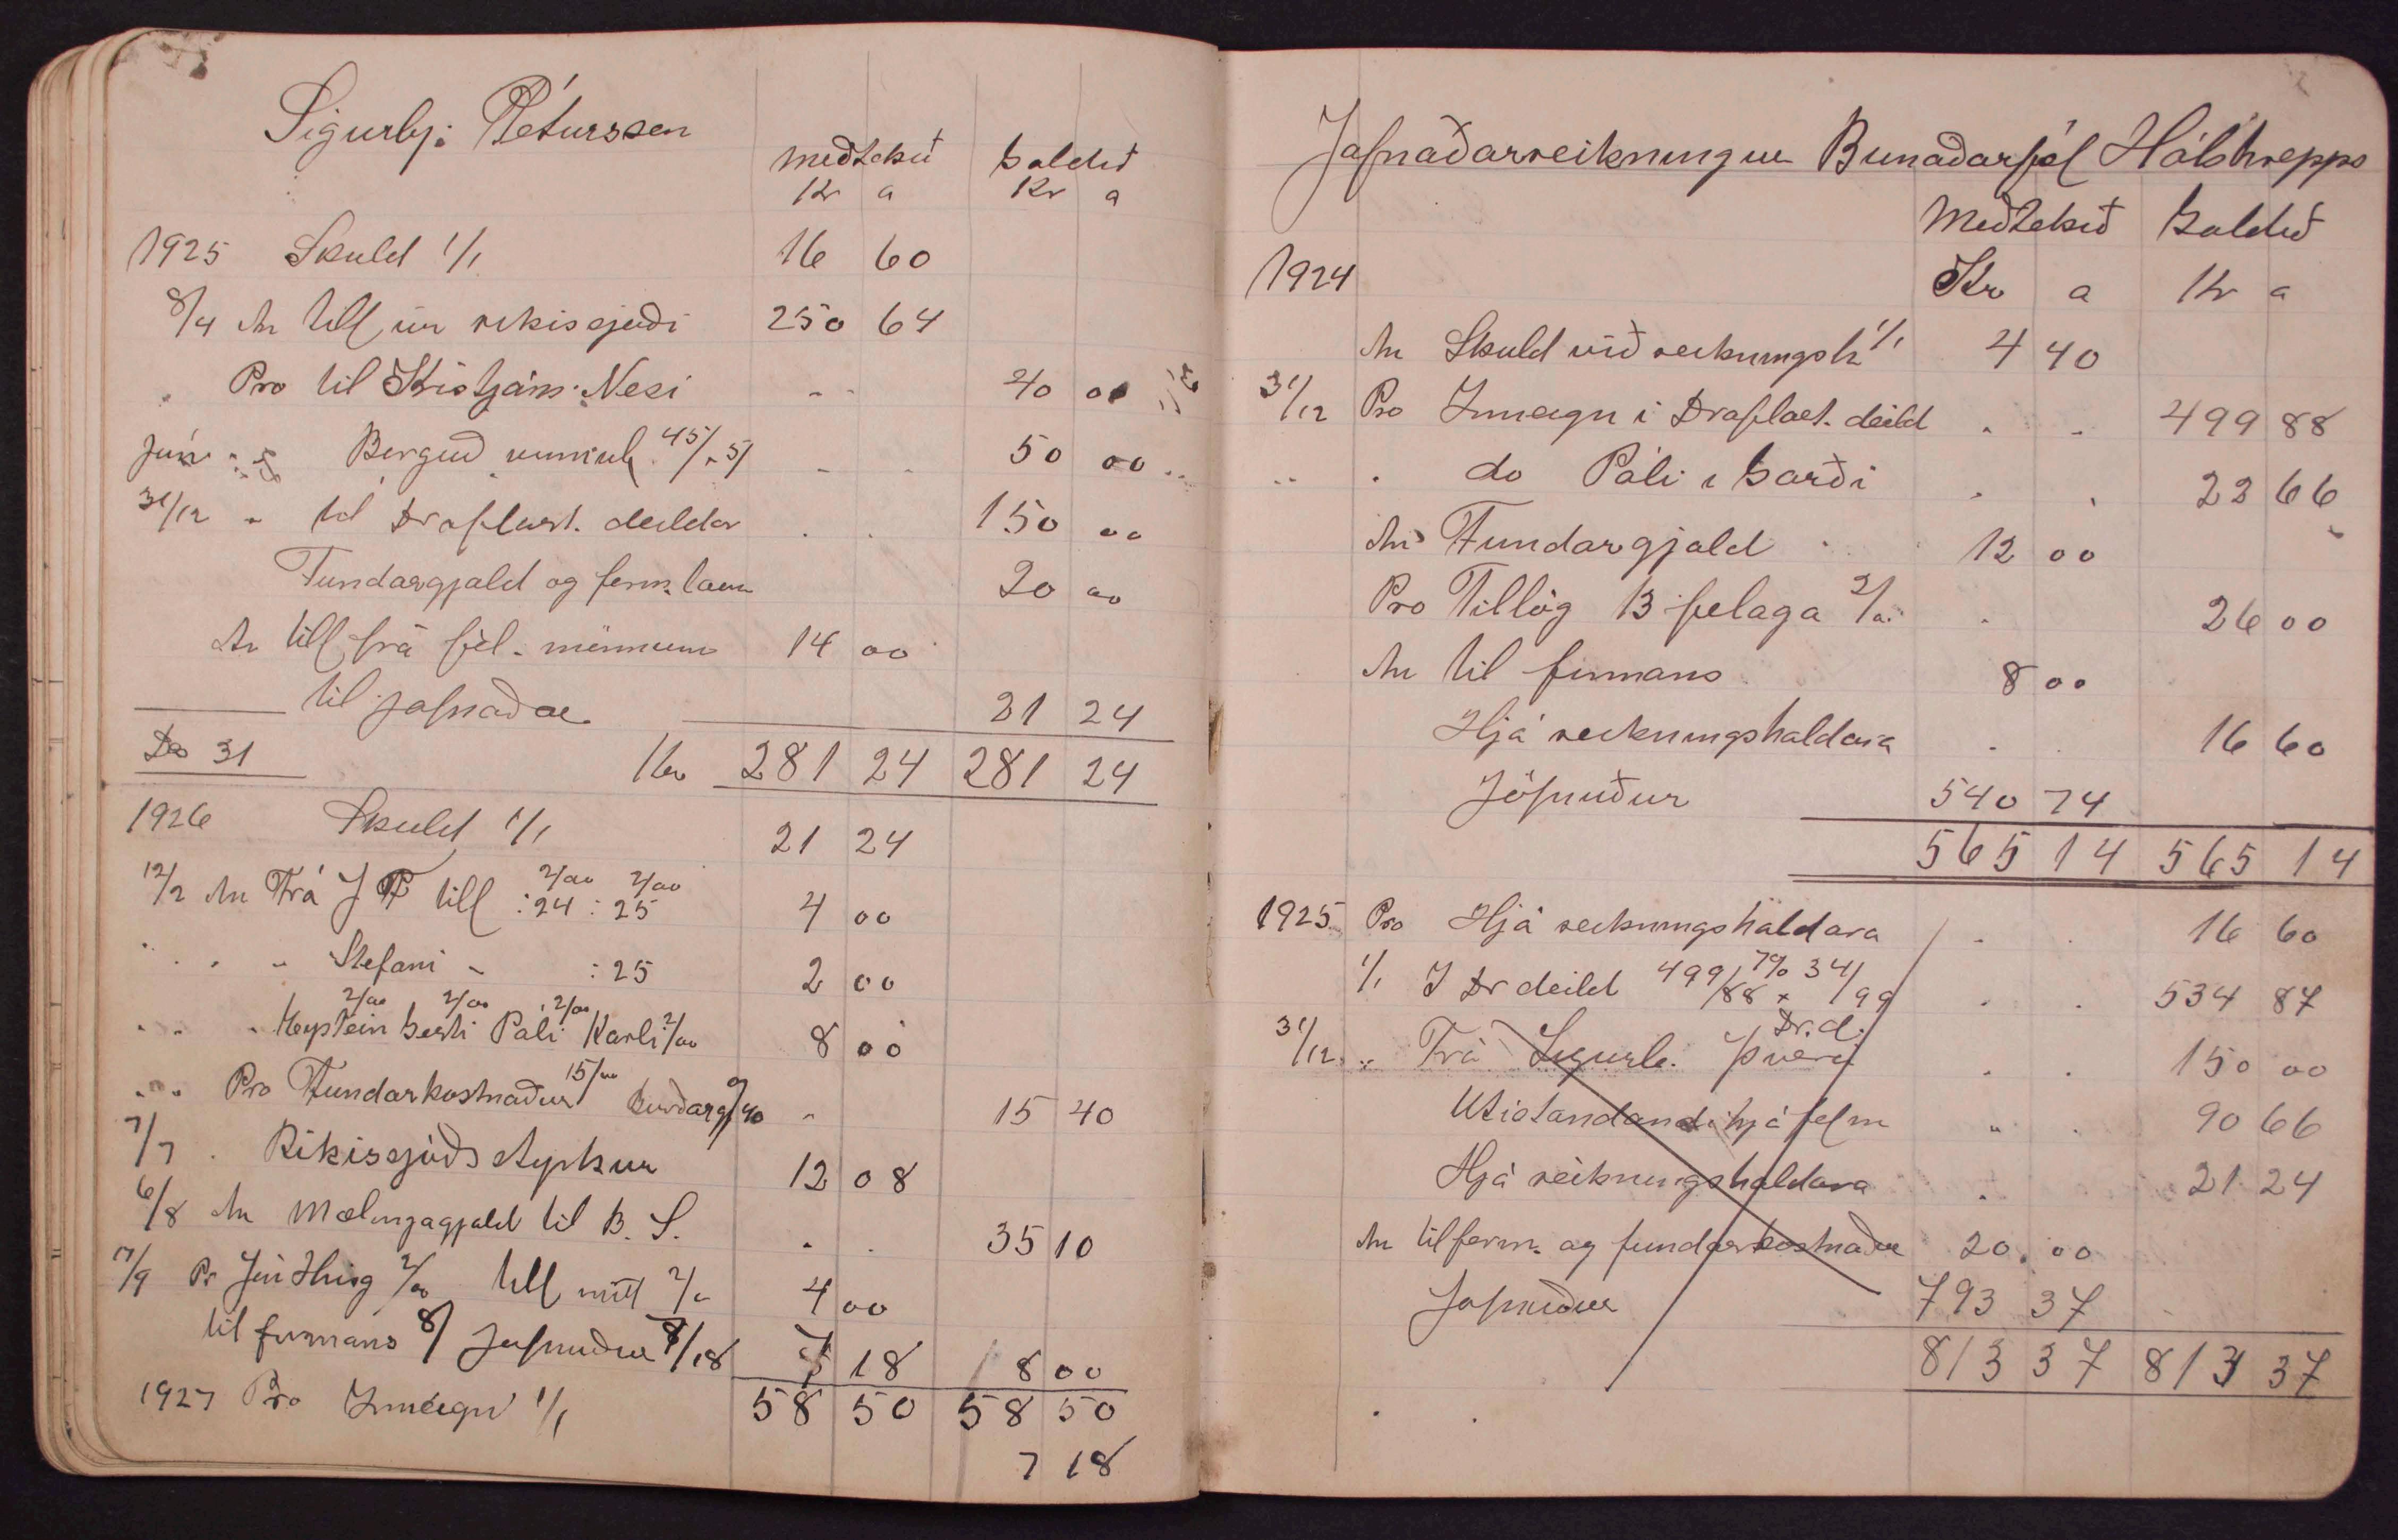 Sigurbj: Pétursson
meðtekið Goldið
Kr a Kr a
1925 Skuld 1/1 16 60
8/4 An till úr rikissjóði 250 64
Pro til Kristjáns Nesi 40 00
Jún 45/ 5/ 50 00
31/12 " til Dráttarv. deildar 150 00
Fundargjald og form. laun 20 00
An till frá fél. mönnum 14 00
til jafnaðar 21 24
Des 31 Kr 281 24 281 24
1926 Skuld 1/1 21 24
2/00 2/00
12/2 An Frá J F till :24 : 25 4 00
" " " Stefani " : 25 2 00
2/00 2/00 2/00
Eystein Gesti Páli Karli 2/00 8 00
" " Pro Fundarkostnaður 15/00 Burðargj 40 15 40
7/7 Ríkissjóðs styrkur 12 08
6/8 An Mælingagjald til B. S. 35 10
17/9 Pr 2/00 till mitt 2/00 4 00
til formans 8/ Jafnuður 7/18 7 18 8 00
58 50 58 50
1927 Pro Inneign 1/1 7 18
Jafnaðarreikningur Bunaðarfél Hálshrepps
Meðtekið Goldið
1924 Kr a Kr a
An Skuld við reikningsh 1/1 4 40
31/12 Pro Inneign i Dráttarv. deild 499 88
" " do Páli i Garði 22 66
An Fundargjald 12 00
Pro Tillög 13 félaga 2/00 26 00
An til formans 8 00
Hjá reikningshaldara 16 60
Jöfnuður 540 74
565 14 565 14
1925 Pro Hjá reikningshaldara 16 60
1/1 I Dr deild 499/88 + 7% 34/99 534 87
Dr. d.
31/12 " Frá Sigurb. Þverá 150 00
Utistandandi hjá félm 90 66
Hjá reikningshaldara 21 24
An til form. og fundarkostnaður 20 00
Jafnuður 793 37
813 37 813 37